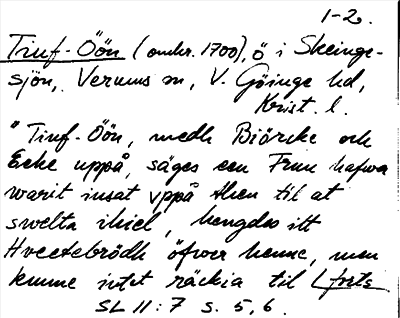 1-2.
Tiuf-Öön (omkr. 1700), ö i Skeinge-
sjön, Verums sn, V. Göinge hd,
Krist. l.
"Tiuf-Öön, medh Biörcke och
Ecke uppå, säges een Fruu hafwa
warit insat vppå then til at
swelta ihiel, hengdes itt
Hveetebrödh öfwer henne, men
kunne intet räckia til Lforts.
SL II:7 s. 5,6.